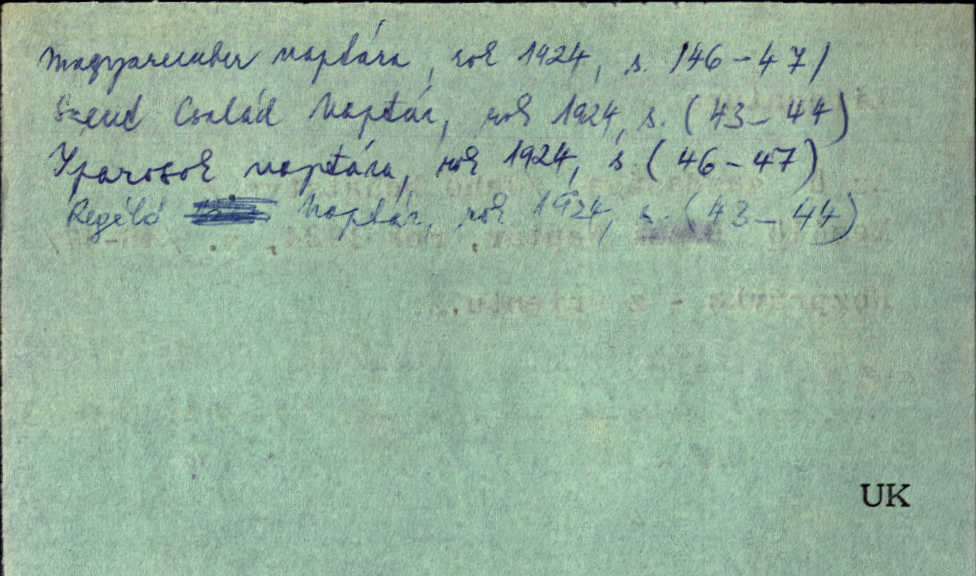 Magyarember naptára, rok 1924, s. /46-47/
Szent Család Naptár, rok 1924, s. (43-44)
Iparosok naptára, rok 1924, s. (46-47)
Regélő Naptár, rok 1924, s. (43-44)
UK